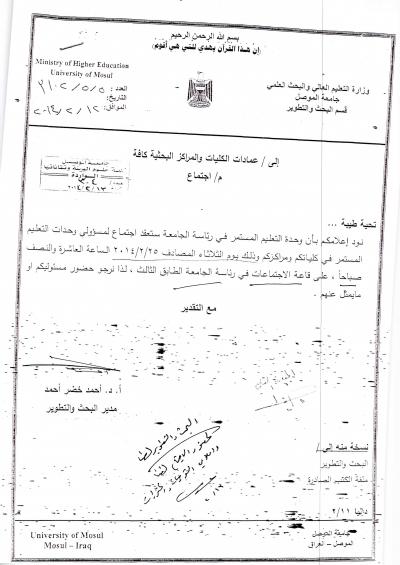 بسم الله الرحمن الرحيم
(إن هذا القرآن يهدي للتي هي أقوم)
Ministry of Higher Education
University of Mosul
وزارة التعليم العالي والبحث العلمي
جامعة الموصل
قسم البحث والتطوير
العدد:
التاريخ:
الموافق: ٢٠١٤/٢/١٢
إلى/ عمادات الكليات والمراكز البحثية كافة
م/ اجتماع
الواردة
٢٠١٤/٢/١٣
تحية طيبة ...
نود إعلامكم بأن وحدة التعليم المستمر في رئاسة الجامعة ستعقد اجتماع لمسؤولي وحدات التعليم
المستمر في كلياتكم ومراكزكم وذلك يوم الثلاثاء المصادف ٢٠١٤/٢/٢٥ الساعة العاشرة والنصف
صباحاً ، على قاعة الاجتماعات في رئاسة الجامعة الطابق الثالث ، لذا نرجو حضور مسئوليكم او
مايمثل عنهم .
مع التقدير
أ. د. أحمد خضر أحمد
مدير البحث والتطوير
نسخة منه إلى/
البحث والتطوير
ملفة الكتب الصادرة
داليا ٢/١١
University of Mosul
Mosul – Iraq
جامعة الموصل
الموصل – العراق